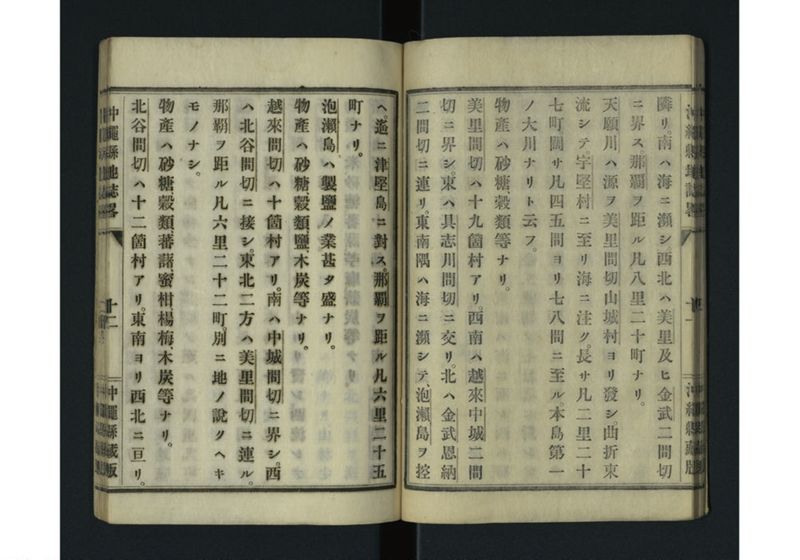 隣リ。南ハ海ニ瀕シ西北ハ美里及ヒ金武二間切
ニ界ス。那覇ヲ距ル凡八里二十町ナリ。
天願川ハ源ヲ美里間切山城村ヨリ發シ曲折東
流シテ宇堅村ニ至リ海ニ注ク。長サ凡二里二十
七町闊サ凡四五間ヨリ七八間ニ至ル。本島第一
ノ大川ナリト云フ。
物產ハ砂糖、穀類等ナリ。
美里間切ハ十九箇村アリ。西南ハ越來中城二間
切ニ界シ。東ハ具志川間切ニ交リ。北ハ金武恩納
二間切ニ連リ。東南隅ハ海ニ瀕シテ、泡瀬島ヲ控
ヘ。遙ニ津堅島ニ對ス。那覇ヲ距ル凡六里二十五
町ナリ。
泡瀬島ハ製鹽ノ業甚タ盛ナリ。
物產ハ砂糖穀類鹽、木炭等ナリ。
越來間切ハ十箇村アリ。南ハ中城間切ニ界シ。西
ハ北谷間切ニ接シ。東北二方ハ美里間切ニ連ル。
那覇ヲ距ル凡六里二十二町。別ニ地ノ說クヘキ
モノナシ。
物產ハ砂糖、穀類、蕃藷、蜜柑、楊梅、木炭等ナリ。
北谷間切ハ十二箇村アリ。東南ヨリ西北ニ亘リ。
沖繩縣地誌畧
十二
沖繩縣藏版